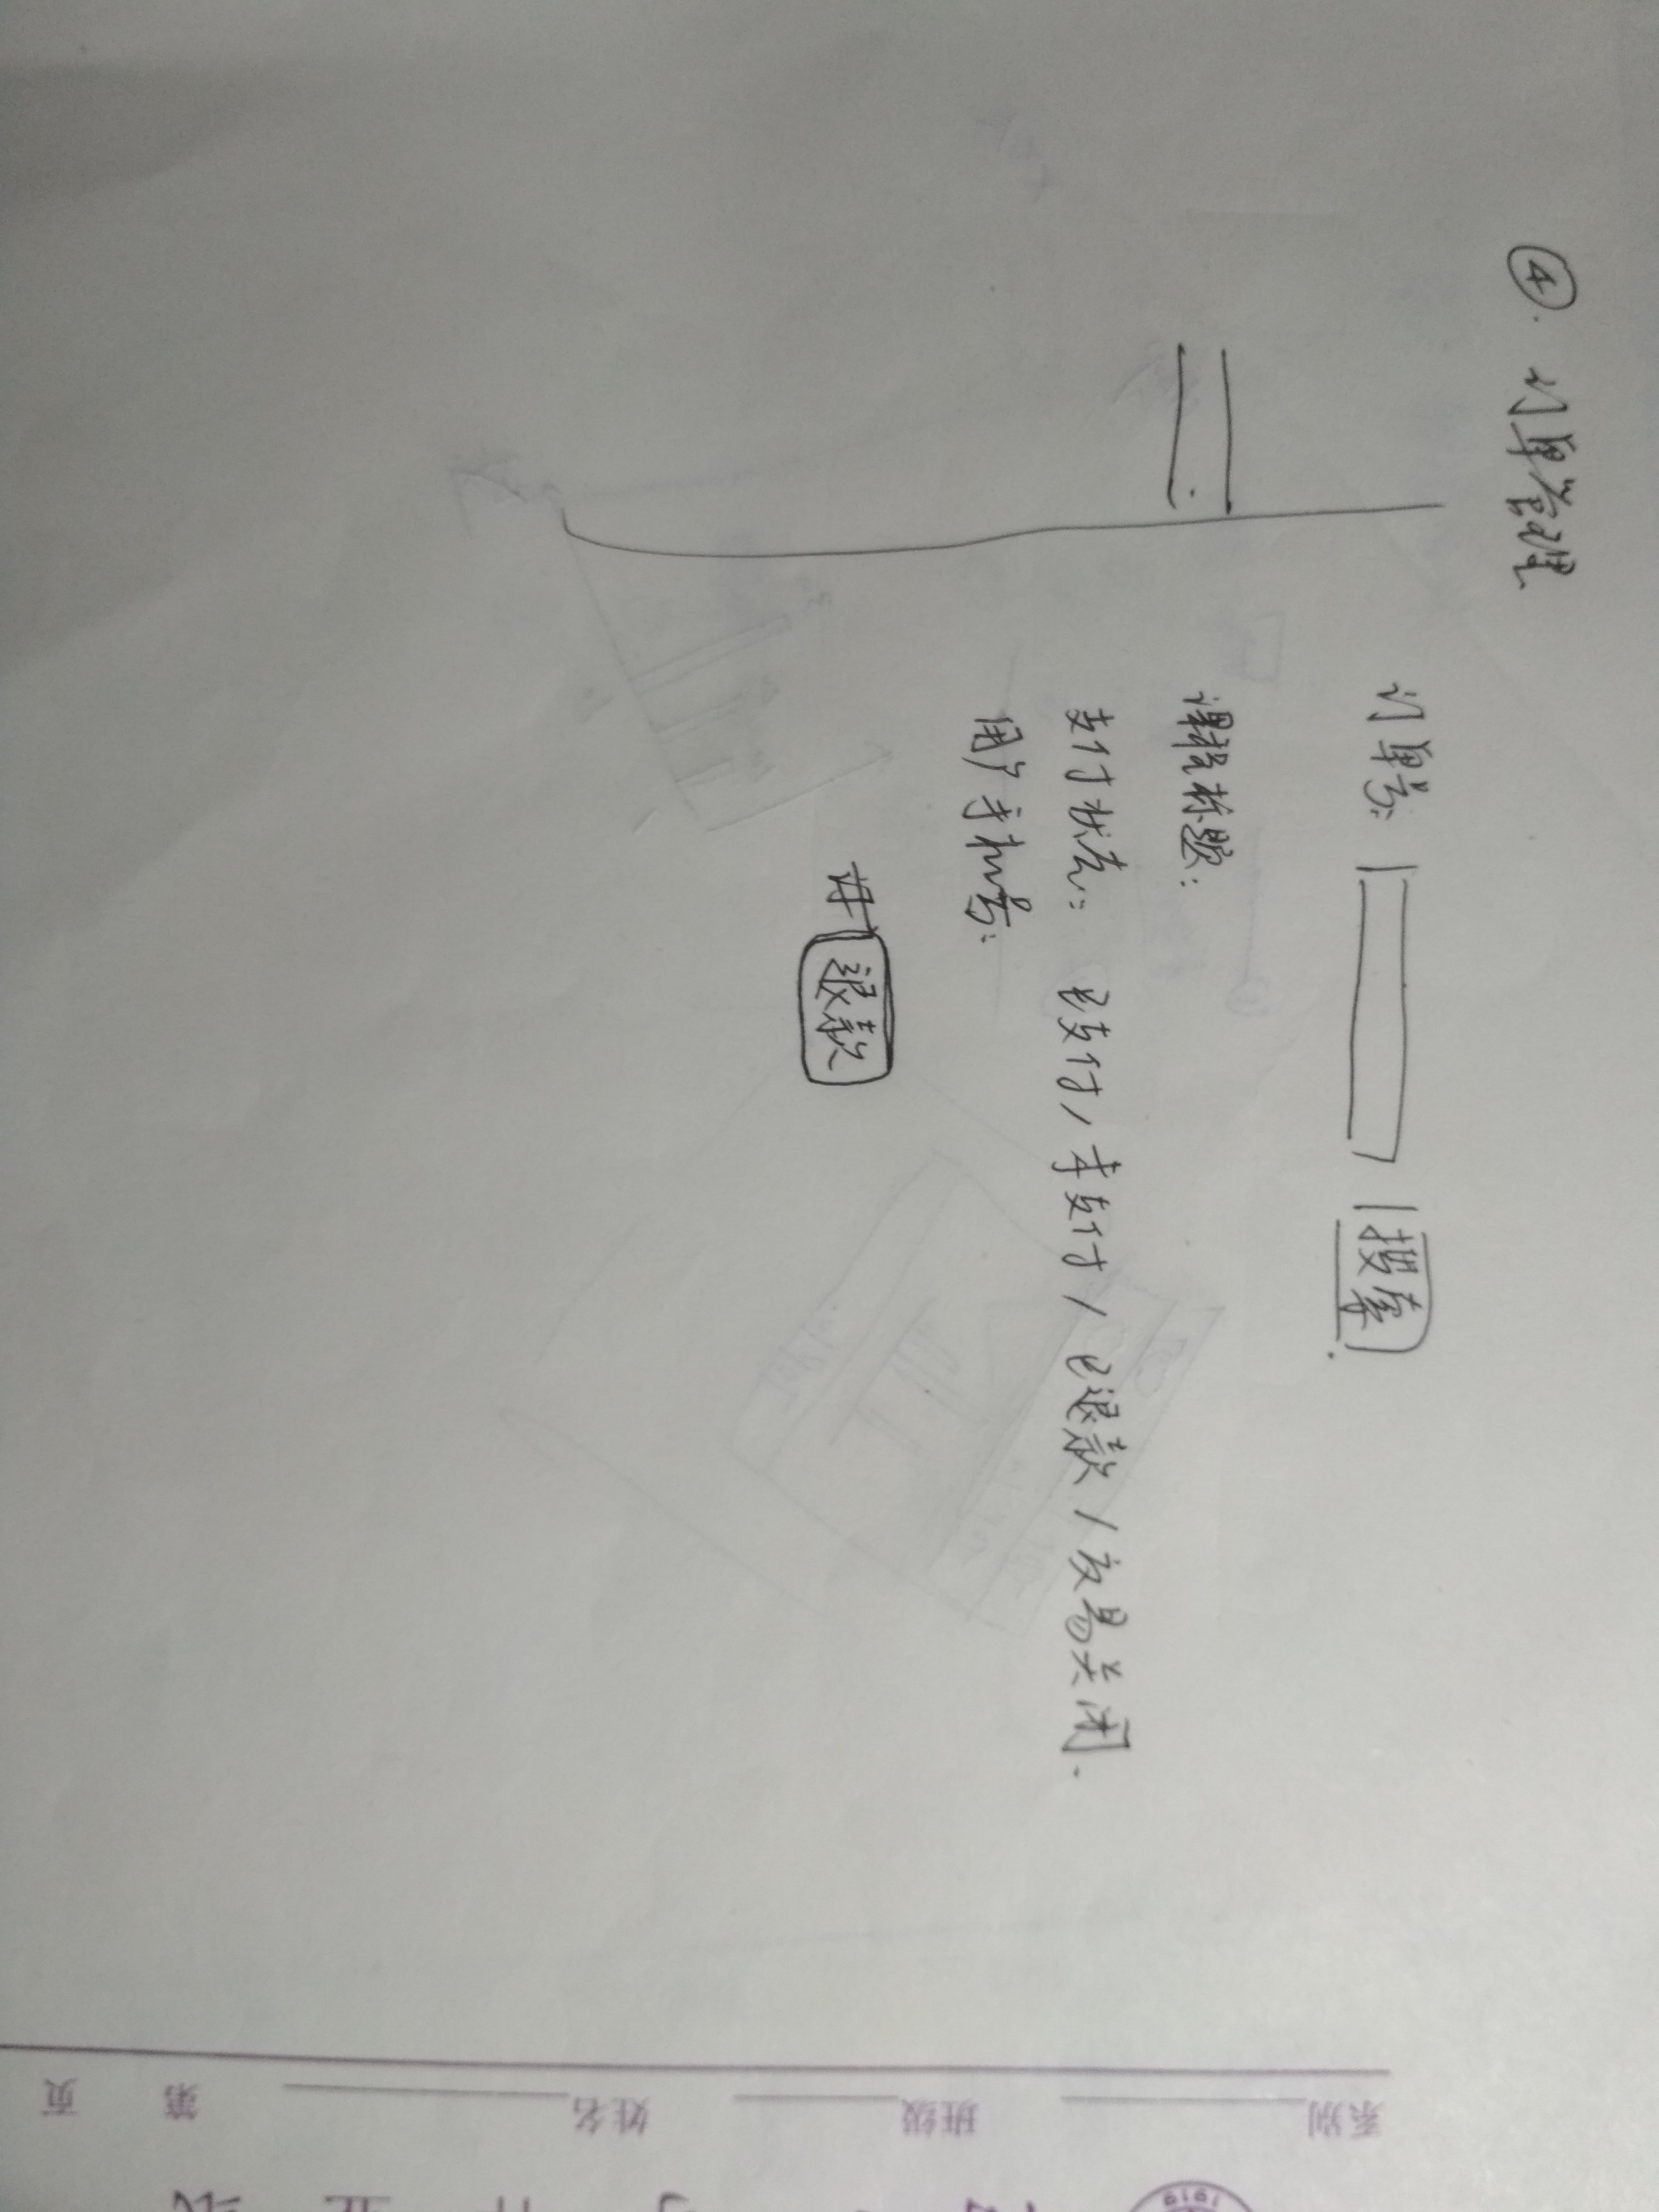 ④. 订单管理
订单号: 搜索.
课程标题:
支付状态: 已支付/未支付/已退款/交易关闭.
用户手机号:
退款
系别 班级 姓名 第 页
1919